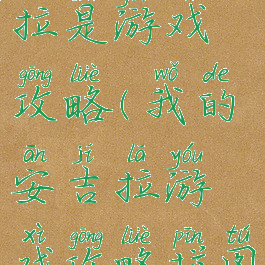 拉是游戏
gōng lüè wǒ de
攻略(我的
ān jí lā yóu
安吉拉游
xì gōng lüè pīn tú
戏攻略拼图